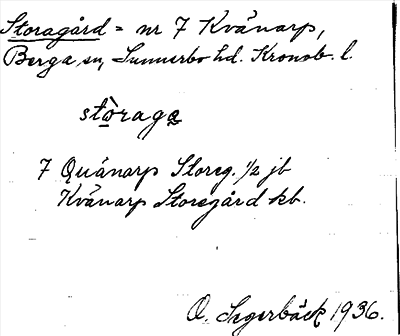 Storagård = nr 7 Kvänarp,
Berga sn, Sunnerbo hd. Kronob. l.
stòraga
7 Quänarp Storeg. 1/2 jb
Kvänarp Storegård kb.
O. Segerbäck 1936.